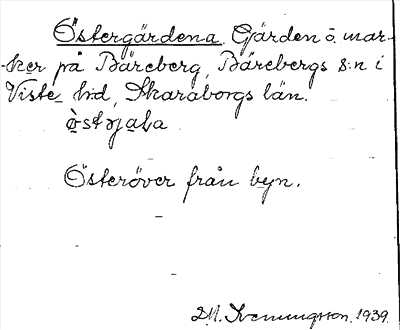 Östergärdena. Gärden o. mar-
-ker på Bäreberg, Bärebergs s:n i
Viste hd, Skaraborgs län.
ö̀stəja̱ḷa
Österöver från byn.
M. Svenungsson. 1939.